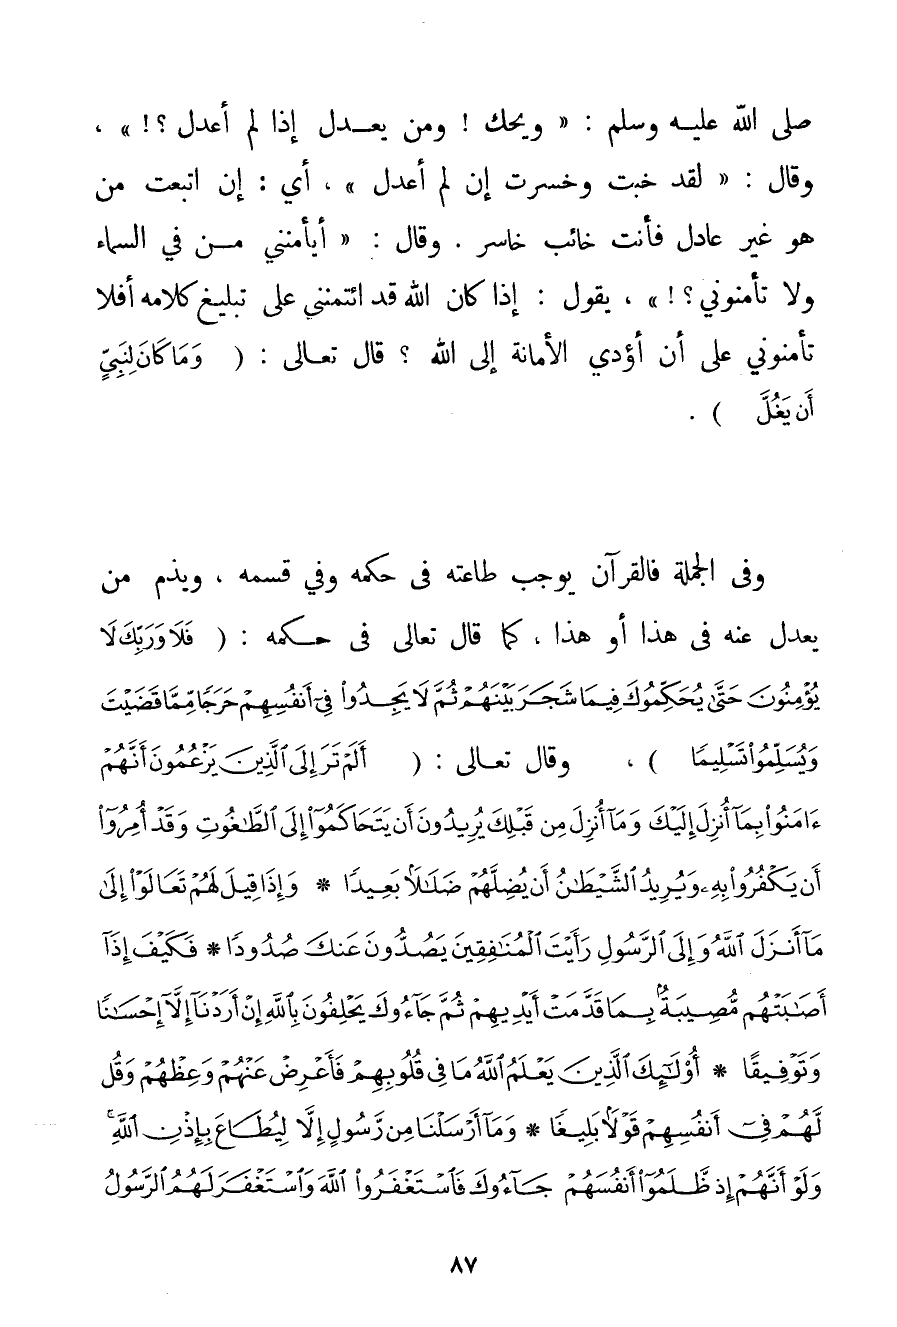 صلى الله عليه وسلم : « ويحك ! ومن يعدل إذا لم أعدل ؟! » ،
وقال : « لقد خبت وخسرت إن لم أعدل » ، أي : إن اتبعت من
هو غير عادل فأنت خائب خاسر . وقال : « أيأمنني من في السماء
ولا تأمنوني ؟! » ، يقول : إذا كان الله قد ائتمنني على تبليغ كلامه أفلا
تأمنوني على أن أؤدي الأمانة إلى الله ؟ قال تعالى : ( وَمَا كَانَ لِنَبِيٍّ
أَن يَغُلَّ ) .
وفى الجملة فالقرآن يوجب طاعته فى حكمه وفي قسمه ، ويذم من
يعدل عنه فى هذا أو هذا ، كما قال تعالى فى حكمه : ( فَلَا وَرَبِّكَ لَا
يُؤْمِنُونَ حَتَّىٰ يُحَكِّمُوكَ فِيمَا شَجَرَ بَيْنَهُمْ ثُمَّ لَا يَجِدُوا۟ فِىٓ أَنفُسِهِمْ حَرَجًا مِّمَّا قَضَيْتَ
وَيُسَلِّمُوا۟ تَسْلِيمًا ) ، وقال تعالى : ( أَلَمْ تَرَ إِلَى ٱلَّذِينَ يَزْعُمُونَ أَنَّهُمْ
ءَامَنُوا۟ بِمَآ أُنزِلَ إِلَيْكَ وَمَآ أُنزِلَ مِن قَبْلِكَ يُرِيدُونَ أَن يَتَحَاكَمُوٓا۟ إِلَى ٱلطَّٰغُوتِ وَقَدْ أُمِرُوٓا۟
أَن يَكْفُرُوا۟ بِهِۦ وَيُرِيدُ ٱلشَّيْطَٰنُ أَن يُضِلَّهُمْ ضَلَٰلًۢا بَعِيدًا * وَإِذَا قِيلَ لَهُمْ تَعَالَوْا۟ إِلَىٰ
مَآ أَنزَلَ ٱللَّهُ وَإِلَى ٱلرَّسُولِ رَأَيْتَ ٱلْمُنَٰفِقِينَ يَصُدُّونَ عَنكَ صُدُودًا * فَكَيْفَ إِذَآ
أَصَٰبَتْهُم مُّصِيبَةٌۢ بِمَا قَدَّمَتْ أَيْدِيهِمْ ثُمَّ جَآءُوكَ يَحْلِفُونَ بِٱللَّهِ إِنْ أَرَدْنَآ إِلَّآ إِحْسَٰنًا
وَتَوْفِيقًا * أُو۟لَٰٓئِكَ ٱلَّذِينَ يَعْلَمُ ٱللَّهُ مَا فِى قُلُوبِهِمْ فَأَعْرِضْ عَنْهُمْ وَعِظْهُمْ وَقُل
لَّهُمْ فِىٓ أَنفُسِهِمْ قَوْلًۢا بَلِيغًا * وَمَآ أَرْسَلْنَا مِن رَّسُولٍ إِلَّا لِيُطَاعَ بِإِذْنِ ٱللَّهِ ۚ
وَلَوْ أَنَّهُمْ إِذ ظَّلَمُوٓا۟ أَنفُسَهُمْ جَآءُوكَ فَٱسْتَغْفَرُوا۟ ٱللَّهَ وَٱسْتَغْفَرَ لَهُمُ ٱلرَّسُولُ
٨٧